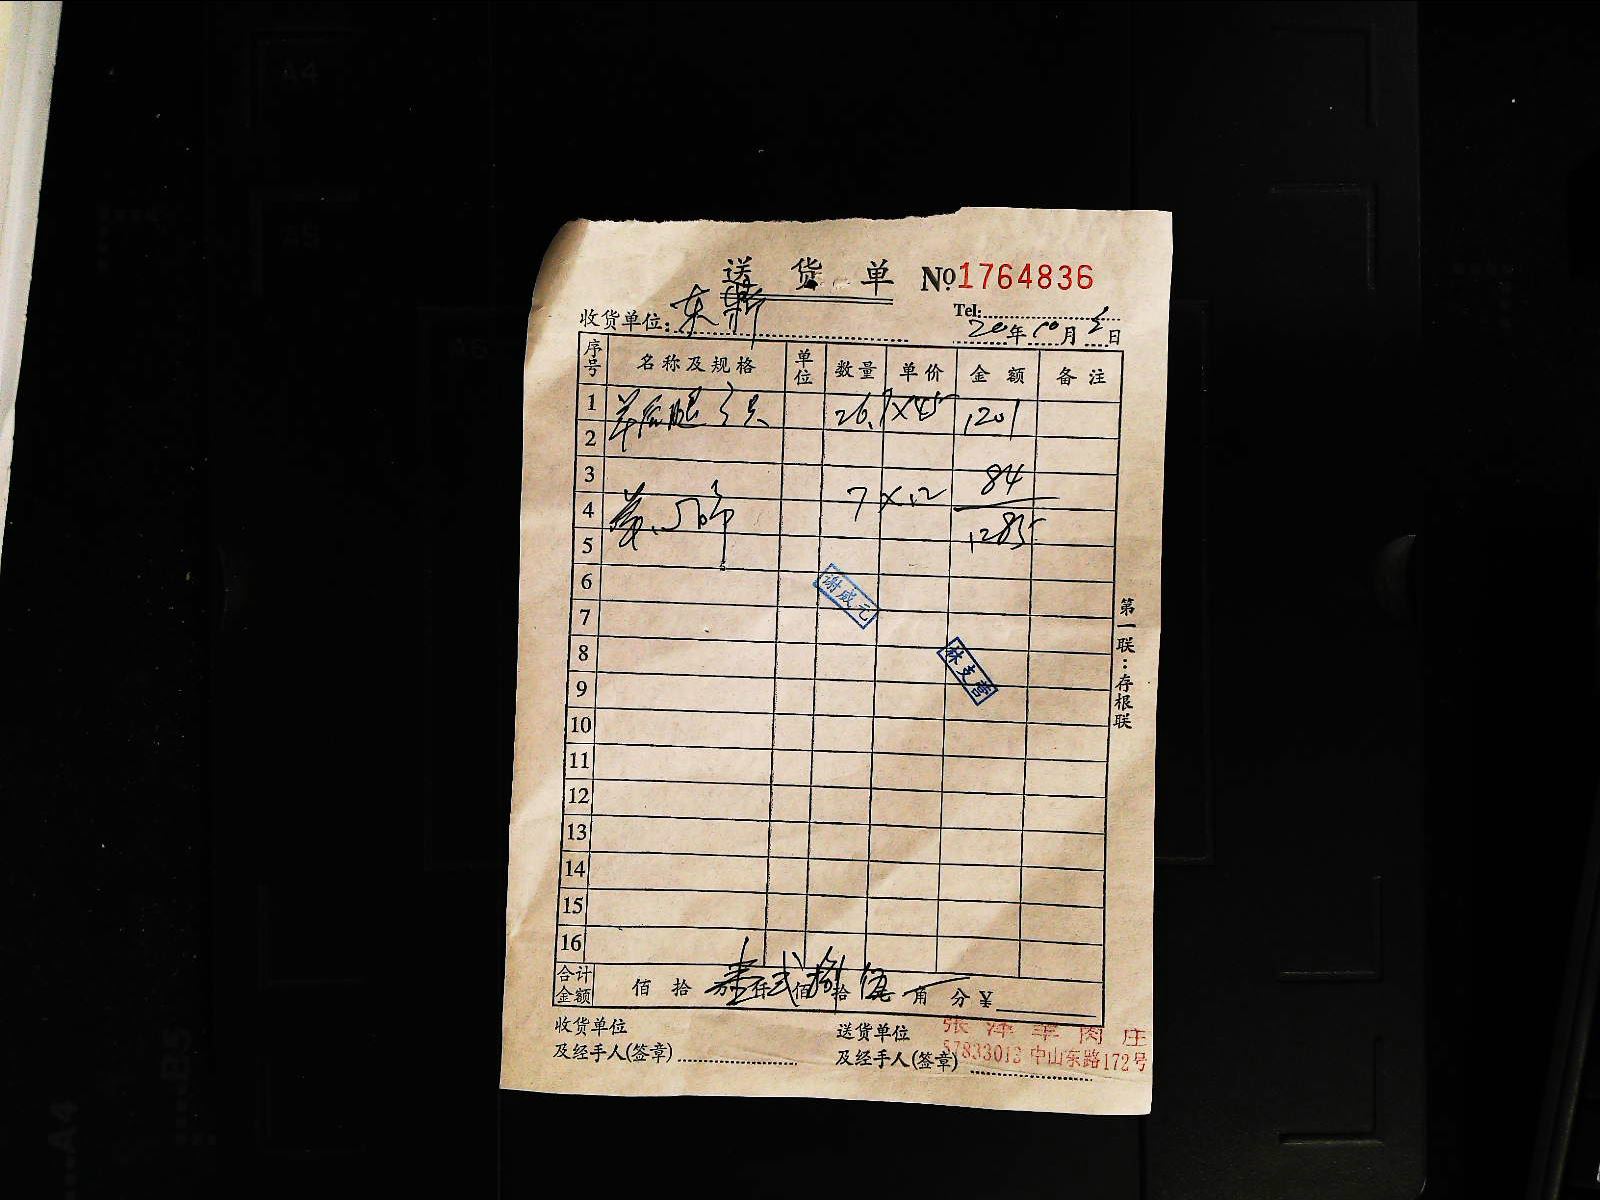 送货单 №1764836
Tel:
收货单位: 东 20年10月2日
序号 名称及规格 单位 数量 单价 金额 备注
1 羊后腿3只 26.7×45 1201
2
3 84
4 7×12
5 1285
6
7
8
9
10
11
12
13
14
15
16
谢威元
林支营
第一联:存根联
合计金额 佰拾万壹仟贰佰捌拾伍元角分¥
收货单位 送货单位
及经手人(签章) 及经手人(签章)
张泽羊肉庄
57833013 中山东路172号
A4
A5
A6
B5
A4